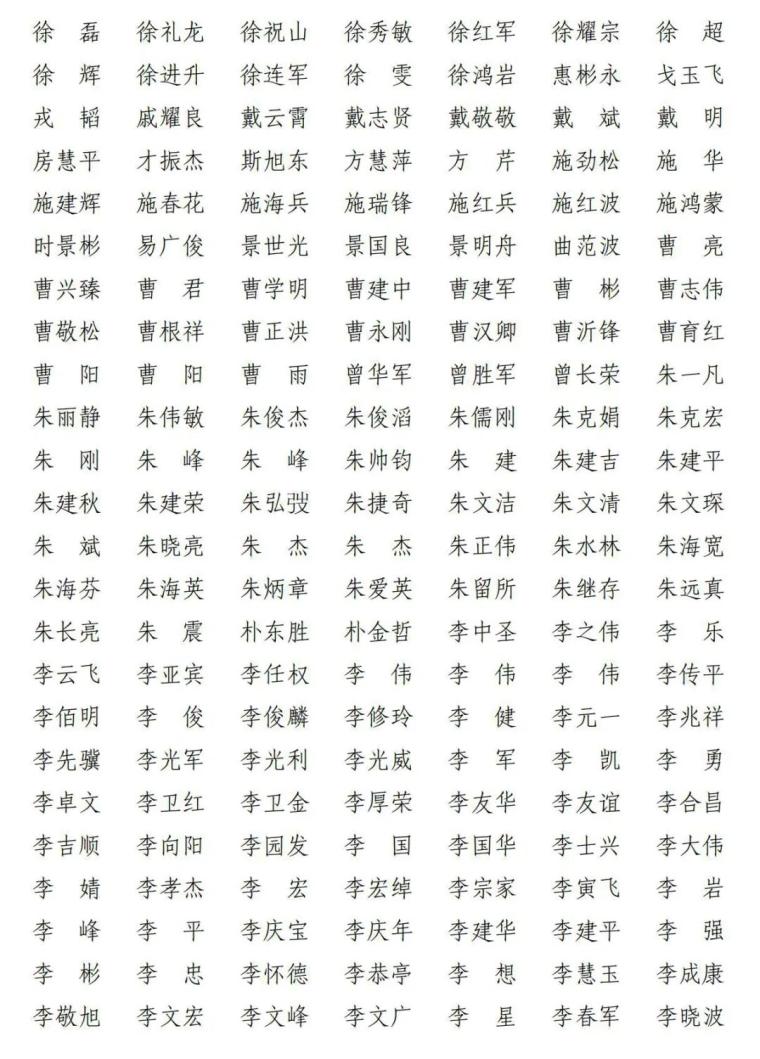 徐　磊　徐礼龙　徐祝山　徐秀敏　徐红军　徐耀宗　徐　超
徐　辉　徐进升　徐连军　徐　雯　徐鸿岩　惠彬永　戈玉飞
戎　韬　戚耀良　戴云霄　戴志贤　戴敬敬　戴　斌　戴　明
房慧平　才振杰　斯旭东　方慧萍　方　芹　施劲松　施　华
施建辉　施春花　施海兵　施瑞锋　施红兵　施红波　施鸿蒙
时景彬　易广俊　景世光　景国良　景明舟　曲范波　曹　亮
曹兴臻　曹　君　曹学明　曹建中　曹建军　曹　彬　曹志伟
曹敬松　曹根祥　曹正洪　曹永刚　曹汉卿　曹沂锋　曹育红
曹　阳　曹　阳　曹　雨　曾华军　曾胜军　曾长荣　朱一凡
朱丽静　朱伟敏　朱俊杰　朱俊滔　朱儒刚　朱克娟　朱克宏
朱　刚　朱　峰　朱　峰　朱帅钧　朱　建　朱建吉　朱建平
朱建秋　朱建荣　朱弘弢　朱捷奇　朱文洁　朱文清　朱文琛
朱　斌　朱晓亮　朱　杰　朱　杰　朱正伟　朱水林　朱海宽
朱海芬　朱海英　朱炳章　朱爱英　朱留所　朱继存　朱远真
朱长亮　朱　震　朴东胜　朴金哲　李中圣　李之伟　李　乐
李云飞　李亚宾　李任权　李　伟　李　伟　李　伟　李传平
李佰明　李　俊　李俊麟　李修玲　李　健　李元一　李兆祥
李先骥　李光军　李光利　李光威　李　军　李　凯　李　勇
李卓文　李卫红　李卫金　李厚荣　李友华　李友谊　李合昌
李吉顺　李向阳　李园发　李　国　李国华　李士兴　李大伟
李　婧　李孝杰　李　宏　李宏绰　李宗家　李寅飞　李　岩
李　峰　李　平　李庆宝　李庆年　李建华　李建平　李　强
李　彬　李　忠　李怀德　李恭亭　李　想　李慧玉　李成康
李敬旭　李文宏　李文峰　李文广　李　星　李春军　李晓波